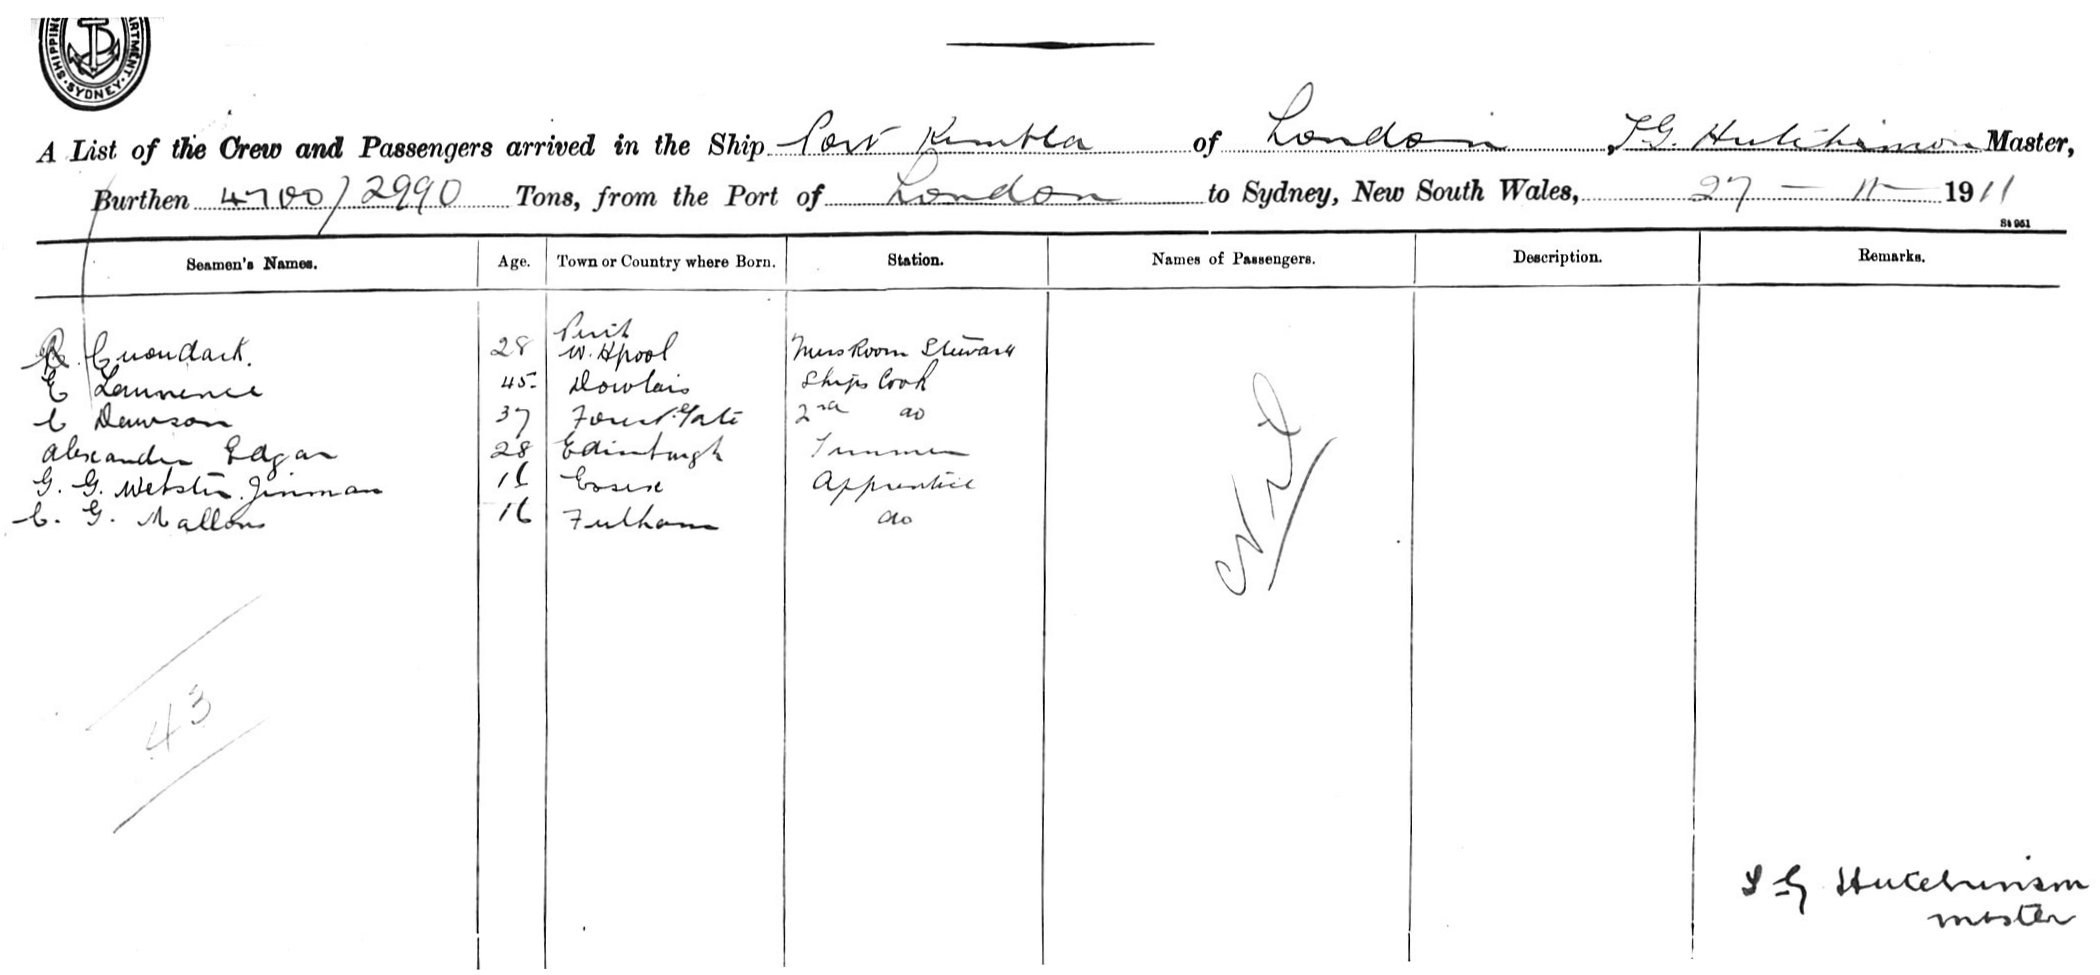 SHIPPING DEPARTMENT SYDNEY
A List of the Crew and Passengers arrived in the Ship Port Kembla of London, T G. Hutchinson Master,
Burthen 4700/2990 Tons, from the Port of London to Sydney, New South Wales, 27 - 11 - 1911
St 961
Seamen's Names. Age. Town or Country where Born. Station. Names of Passengers. Description. Remarks.
28 W. Hpool Mess Room Steward
E Lawrence 45 Dowlais Ships Cook
C Dawson 37 Forest Gate 2nd do
Alexander Edgar 28 Edinburgh Trimmer
G. G. Webster Jinman 16 Essex Apprentice
C. G. 16 Fulham do
Nil
43
T G Hutchinson
master